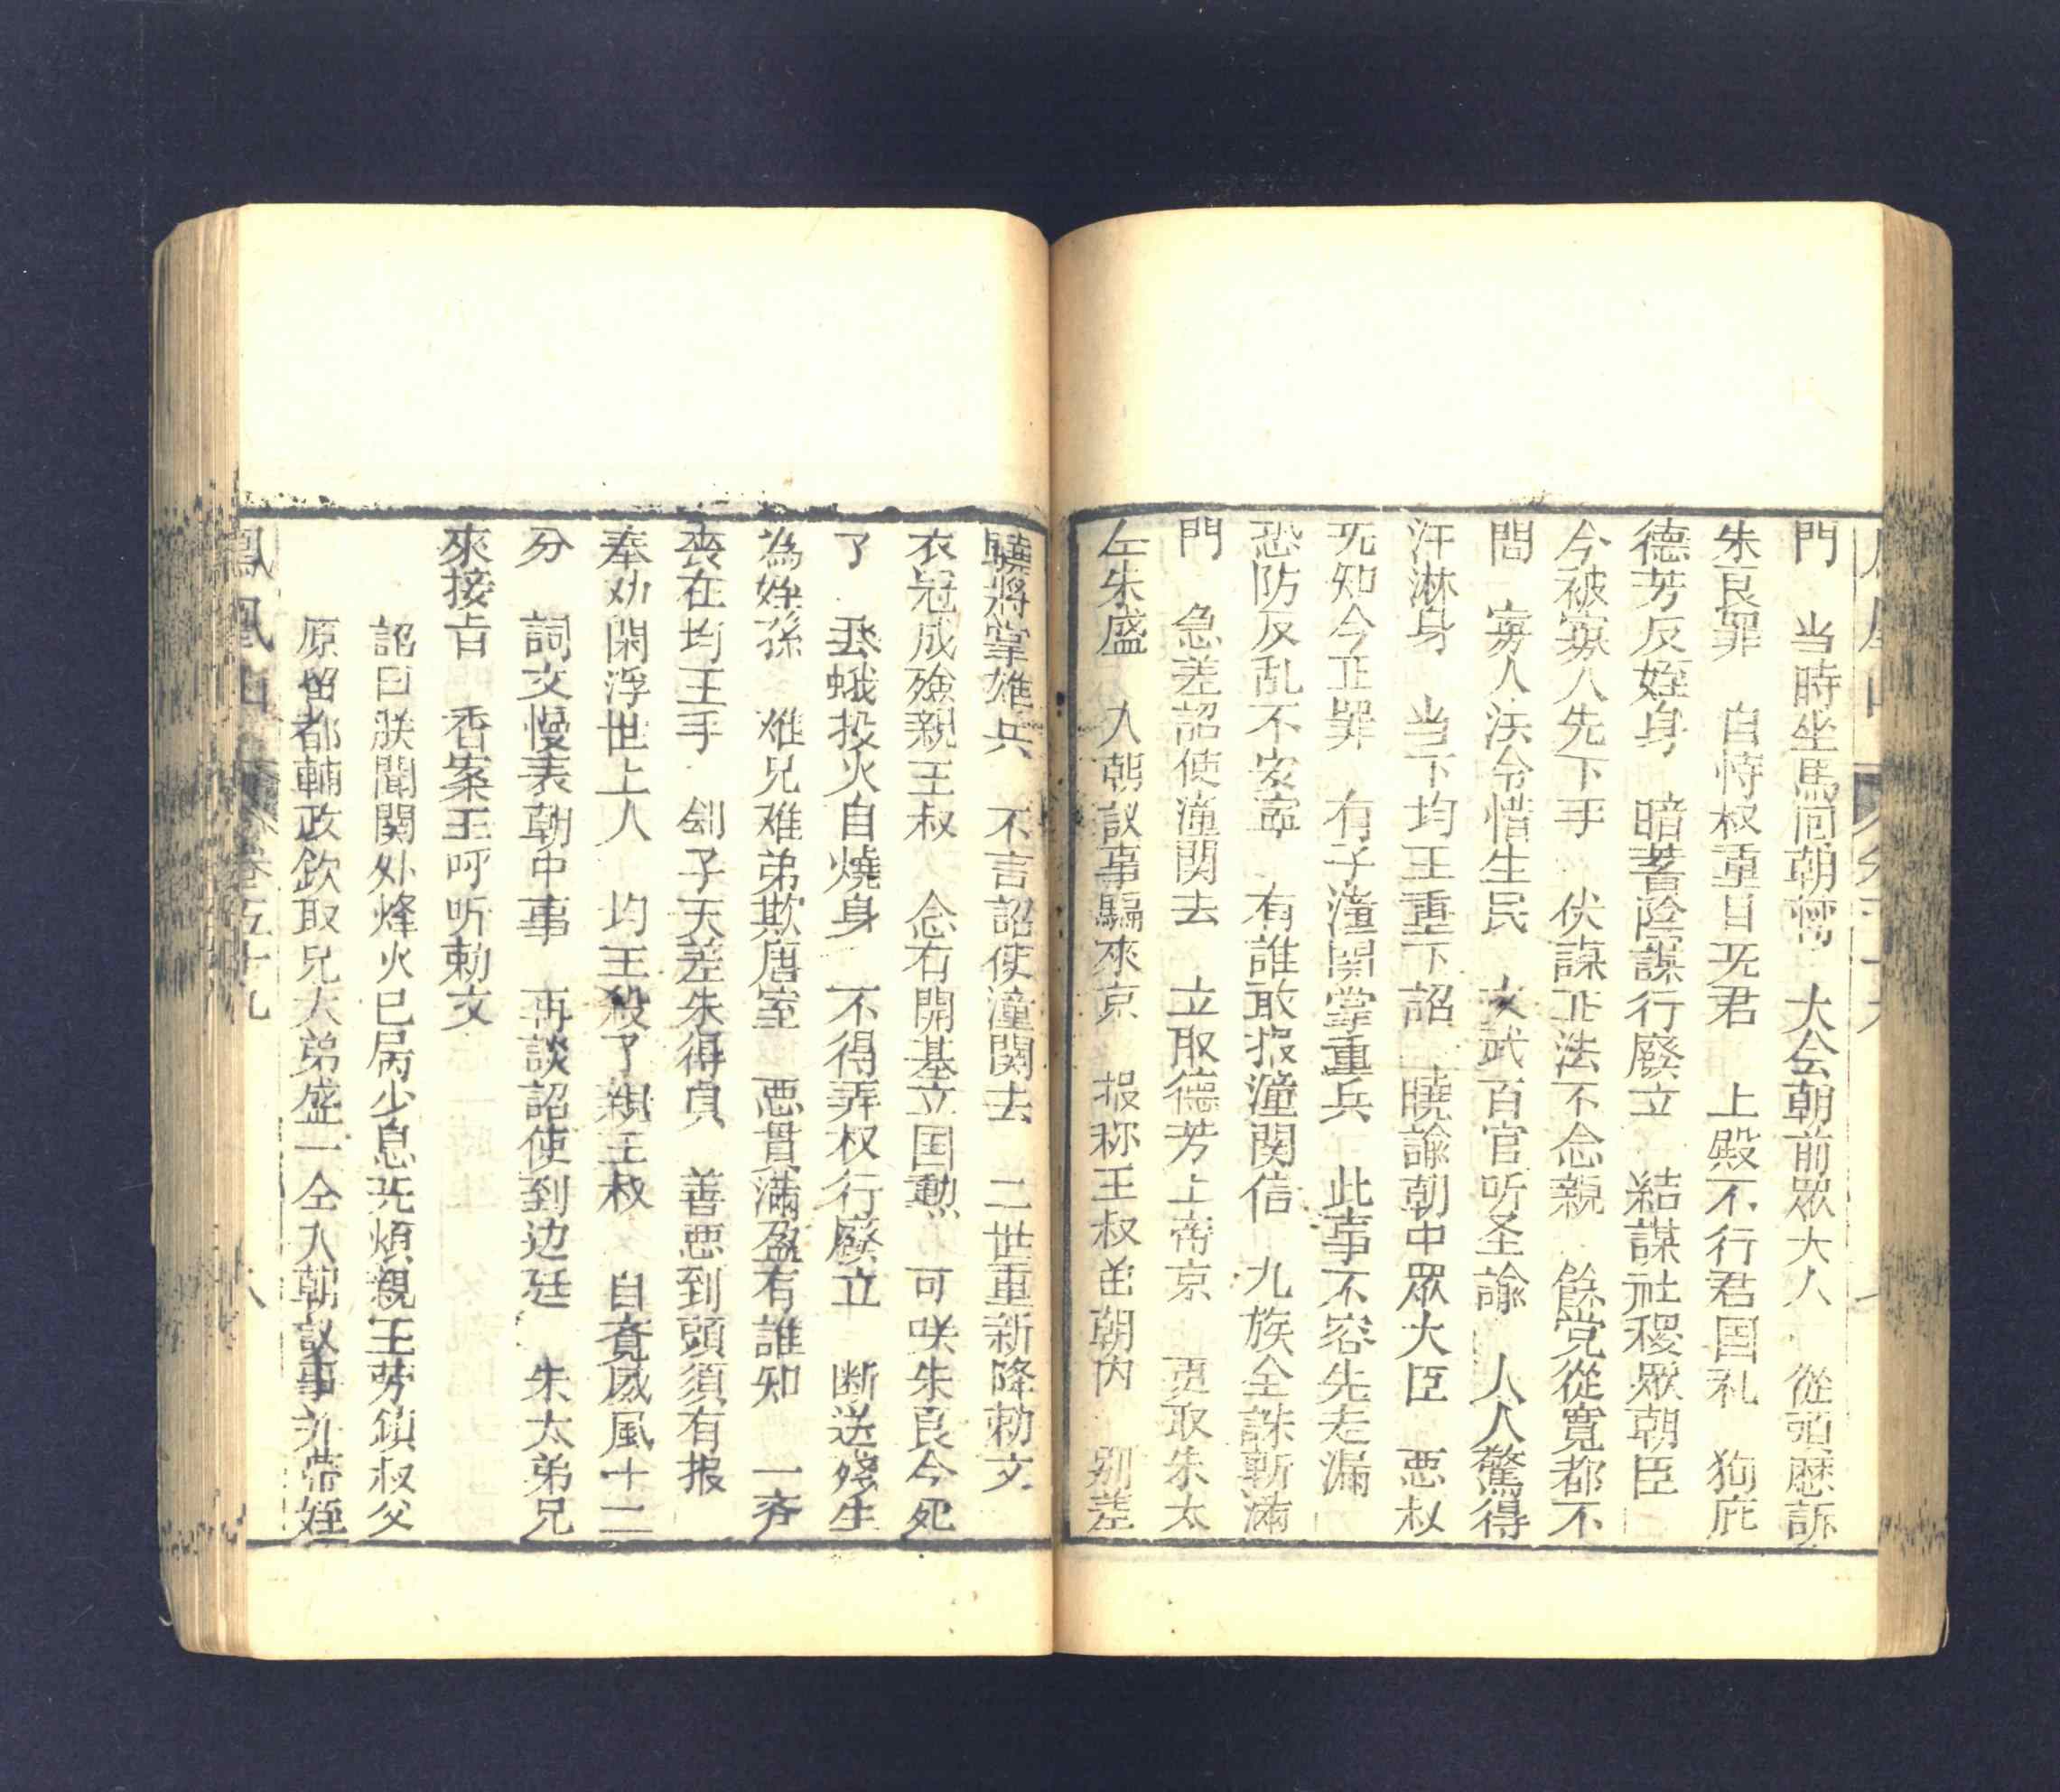 門　当時坐馬囬朝轉　大会朝前眾大人　從頭歷訴
朱良罪　自恃权重目旡君　上殿不行君国礼　狗庇
德芳反姪身　暗蓄陰謀行廢立　結謀社稷眾朝臣
今被寡人先下手　伏謀正法不念親　餘党從寬都不
問　寡人法令惜生民　文武百官听圣諭　人人驚得
汗淋身　当下均王重下詔　曉諭朝中眾大臣　悪叔
旡知今正罪　有子潼関掌重兵　此事不容先走漏
恐防反乱不安寧　有誰敢报潼関信　九族全誅斬滿
門　急差詔使潼関去　立取德芳上帝京　更取朱太
左朱盛　入朝議事騙來京　报称王叔在朝内　别差
驍將掌雄兵　不言詔使潼関去　二世重新降勅文
衣冠成殮親王叔　念右開基立国勲　可咲朱良今死
了　丢蛾投火自燒身　不得弄权行廢立　断送殘生
為姪孫　难兄难弟欺唐室　悪貫滿盈有誰知　一斉
喪在均王手　刽子天差朱得貞　善悪到頭須有报
奉劝閑浮世上人　均王殺了親王叔　自覔威風十二
分　詞文慢表朝中事　再談詔使到边廷　朱太弟兄
來接旨　香案王呼听勅文
詔曰朕聞関外烽火已屌少息旡煩親王劳鎮叔父
原留都輔政欽取兄太弟盛一仝入朝議事并帶姪
鳳凰山　卷五十九　八